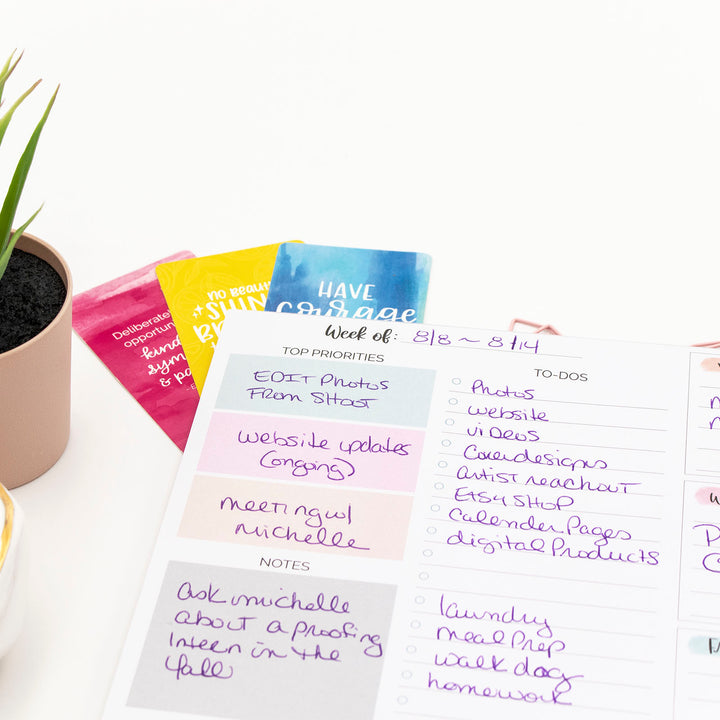 Deliberate
opportun
kind
sym
& pa
NO BEAUT
SHIN
BR
HAVE
courage
Week of: 8/8 ~ 8/14
TOP PRIORITIES
EDIT Photos
From SHOOT
website updates
(ongoing)
meeting w/
michelle
NOTES
ask michelle
about a proofing
Intern in the
fall
TO-DOS
Photos
website
videos
Coverdesigns
artist reachout
Etsy SHOP
Calender Pages
digital Products
laundry
meal Prep
walk dog
homework